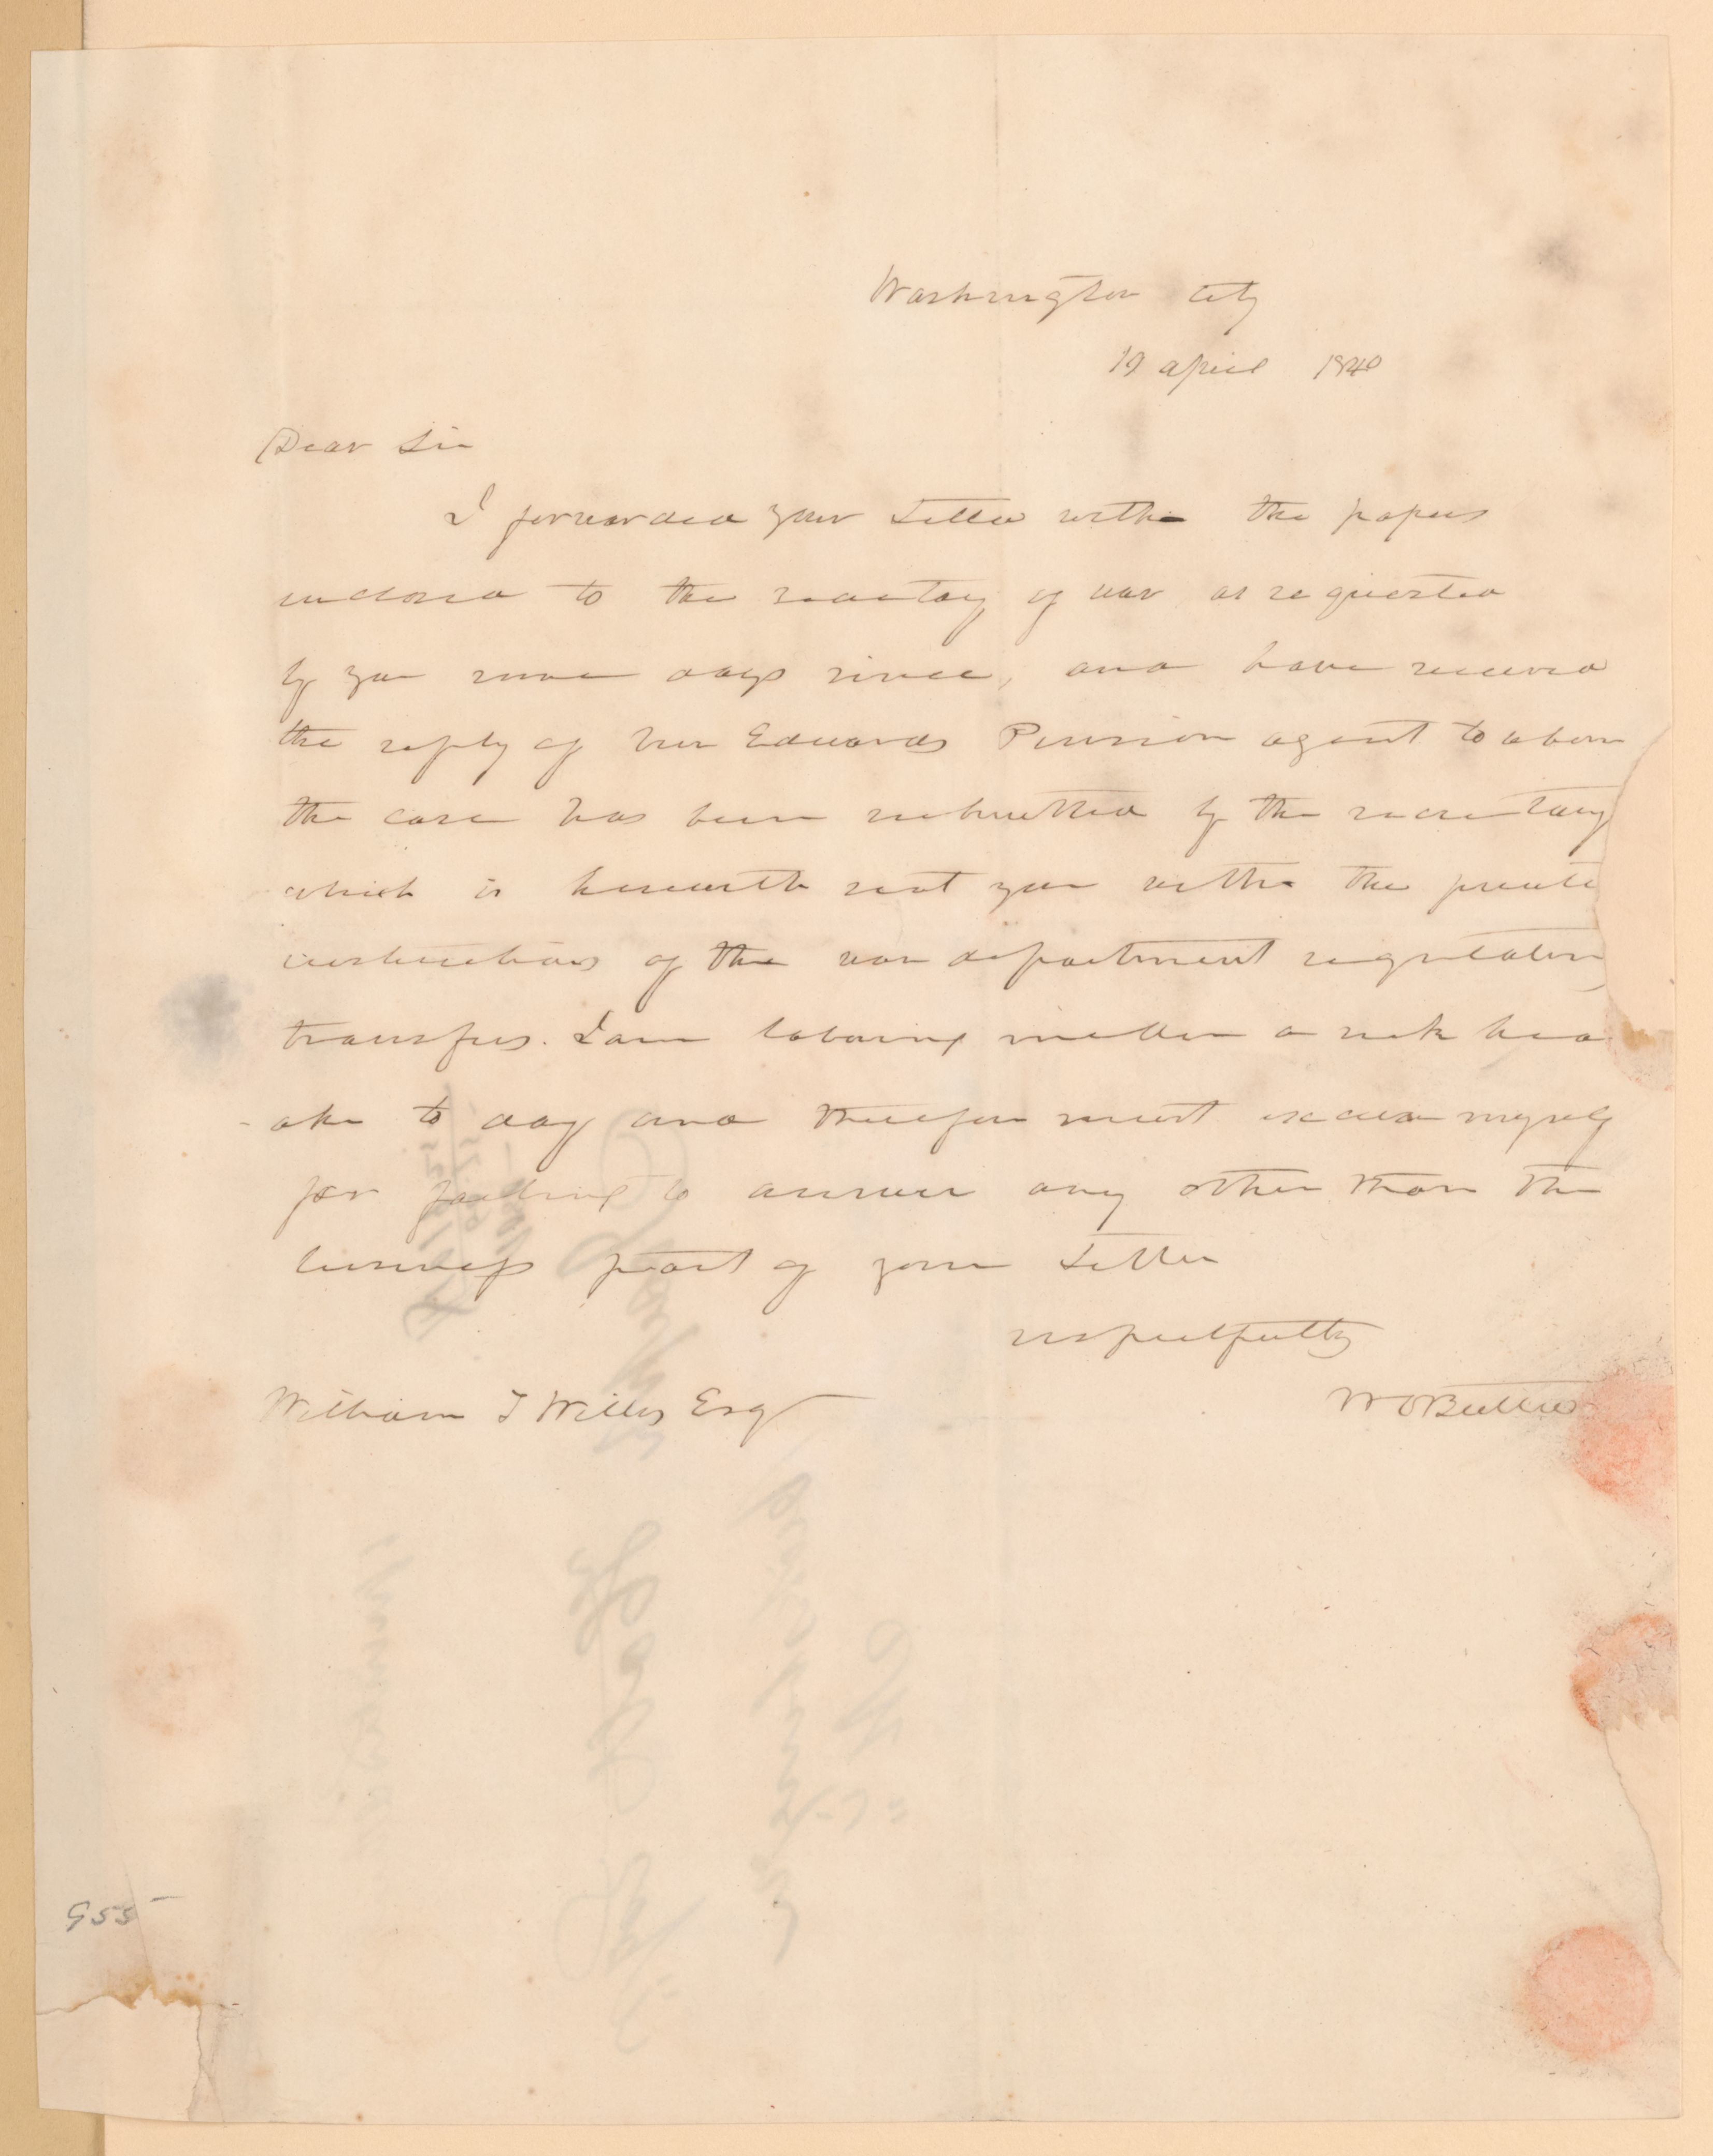 Washington City
19 April 1840
Dear Sir
I forwarded your Letter with the papers
enclosed to the secretary of war as requested
by you some days since, and have received
the reply of Mr Edwards Pension agent to whom
the case has been submitted by the secretary
which is herewith sent you with the printed
instructions of the war department regulating
transfers. I am laboring under a sick head
-ake to day and therefore must excuse myself
for failing to answer any other than the
business part of your Letter
respectfully
William T Willis Esq
W O Butler
955